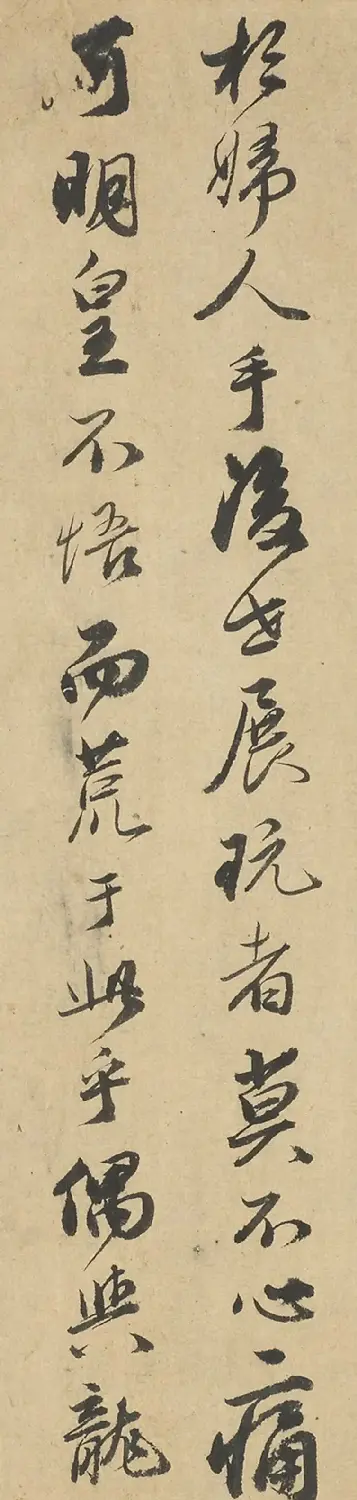 於婦人手後世展玩者莫不心痛
何明皇不悟而荒于此乎偶與龍